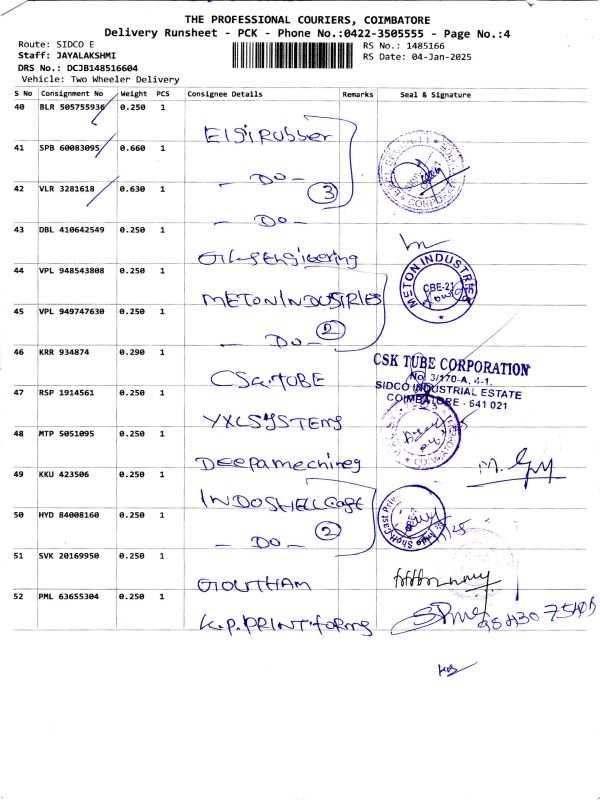 THE PROFESSIONAL COURIERS, COIMBATORE
Delivery Runsheet - PCK - Phone No.:0422-3505555 - Page No.:4
Route: SIDCO E
RS No.: 1485166
Staff: JAYALAKSHMI
RS Date: 04-Jan-2025
DRS No.: DCJB148516604
Vehicle: Two Wheeler Delivery
S No Consignment No Weight PCS Consignee Details Remarks Seal & Signature
40 BLR 505755936 0.250 1
Elsi Rubber
41 SPB 60083095 0.660 1
- DO -
3
42 VLR 3281618 0.630 1
- DO -
43 DBL 410642549 0.250 1
44 VPL 948543808 0.250 1
METON INDUSTRIES
METON INDUSTRIES
CBE-21
45 VPL 949747630 0.250 1
- DO -
2
46 KRR 934874 0.290 1
CSK TUBE CORPORATION
No. 3/170-A, 4-1,
SIDCO INDUSTRIAL ESTATE
COIMBATORE - 641 021
47 RSP 1914561 0.250 1
YXLSYSTEMS
48 MTP 5051095 0.250 1
49 KKU 423506 0.250 1
INDOSHELL Cast
50 HYD 84008160 0.250 1
- DO -
2
51 SVK 20169950 0.250 1
GOUTHAM
52 PML 63655304 0.250 1
K.P.PRINT forms